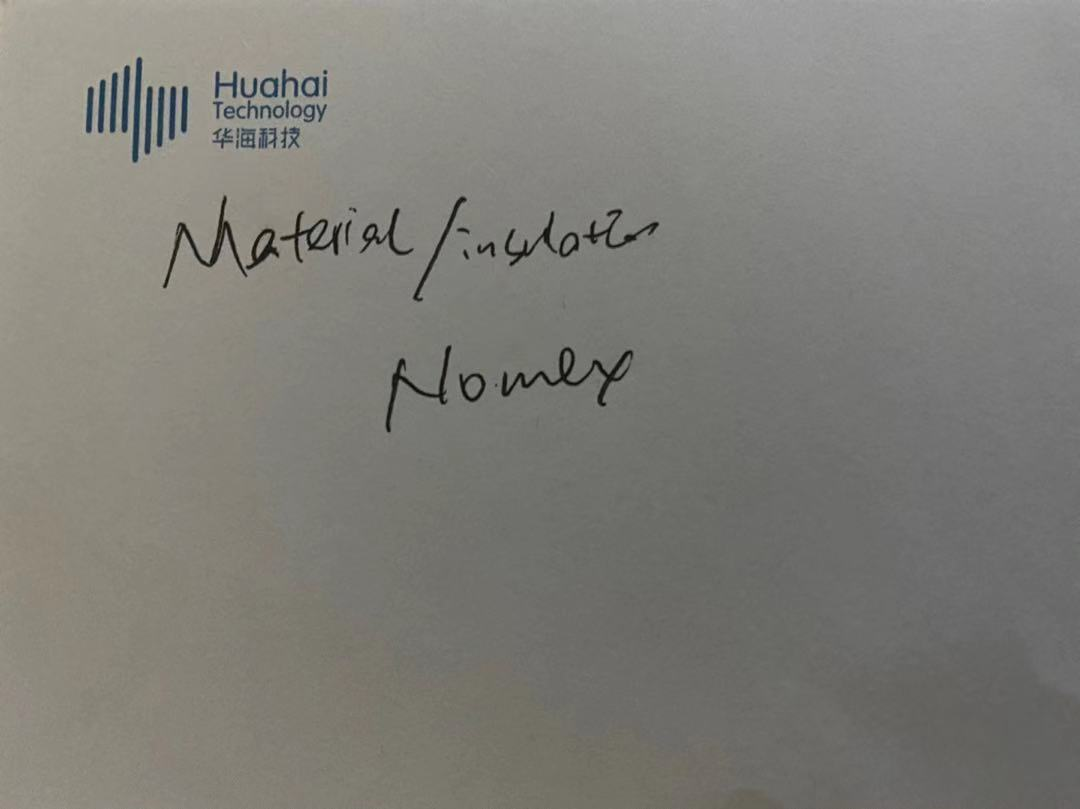 Huahai
Technology
华海科技
Material/insulation
Nomex